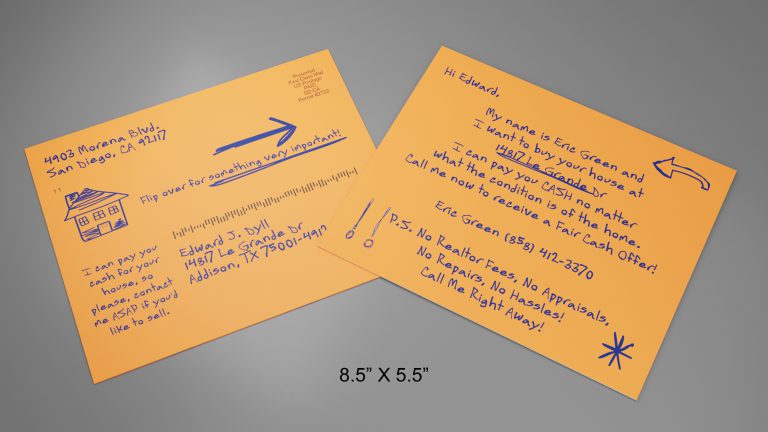 Presorted
First Class Mail
US Postage
PAID
SD CA
Permit #2722
4903 Morena Blvd.
San Diego, CA 92117
Flip over for something very important!
I can pay you
cash for your
house, so
please, contact
me ASAP if you'd
like to sell.
Edward J. Dyll
14817 Le Grande Dr
Addison, TX 75001-4912
Hi Edward,
My name is Eric Green and
I want to buy your house at
14817 Le Grande Dr
I can pay you CASH no matter
what the condition is of the home.
Call me now to receive a Fair Cash Offer!
Eric Green (858) 412-3370
P.S. No Realtor Fees, No Appraisals,
No Repairs, No Hassles!
Call Me Right Away!
8.5” X 5.5”